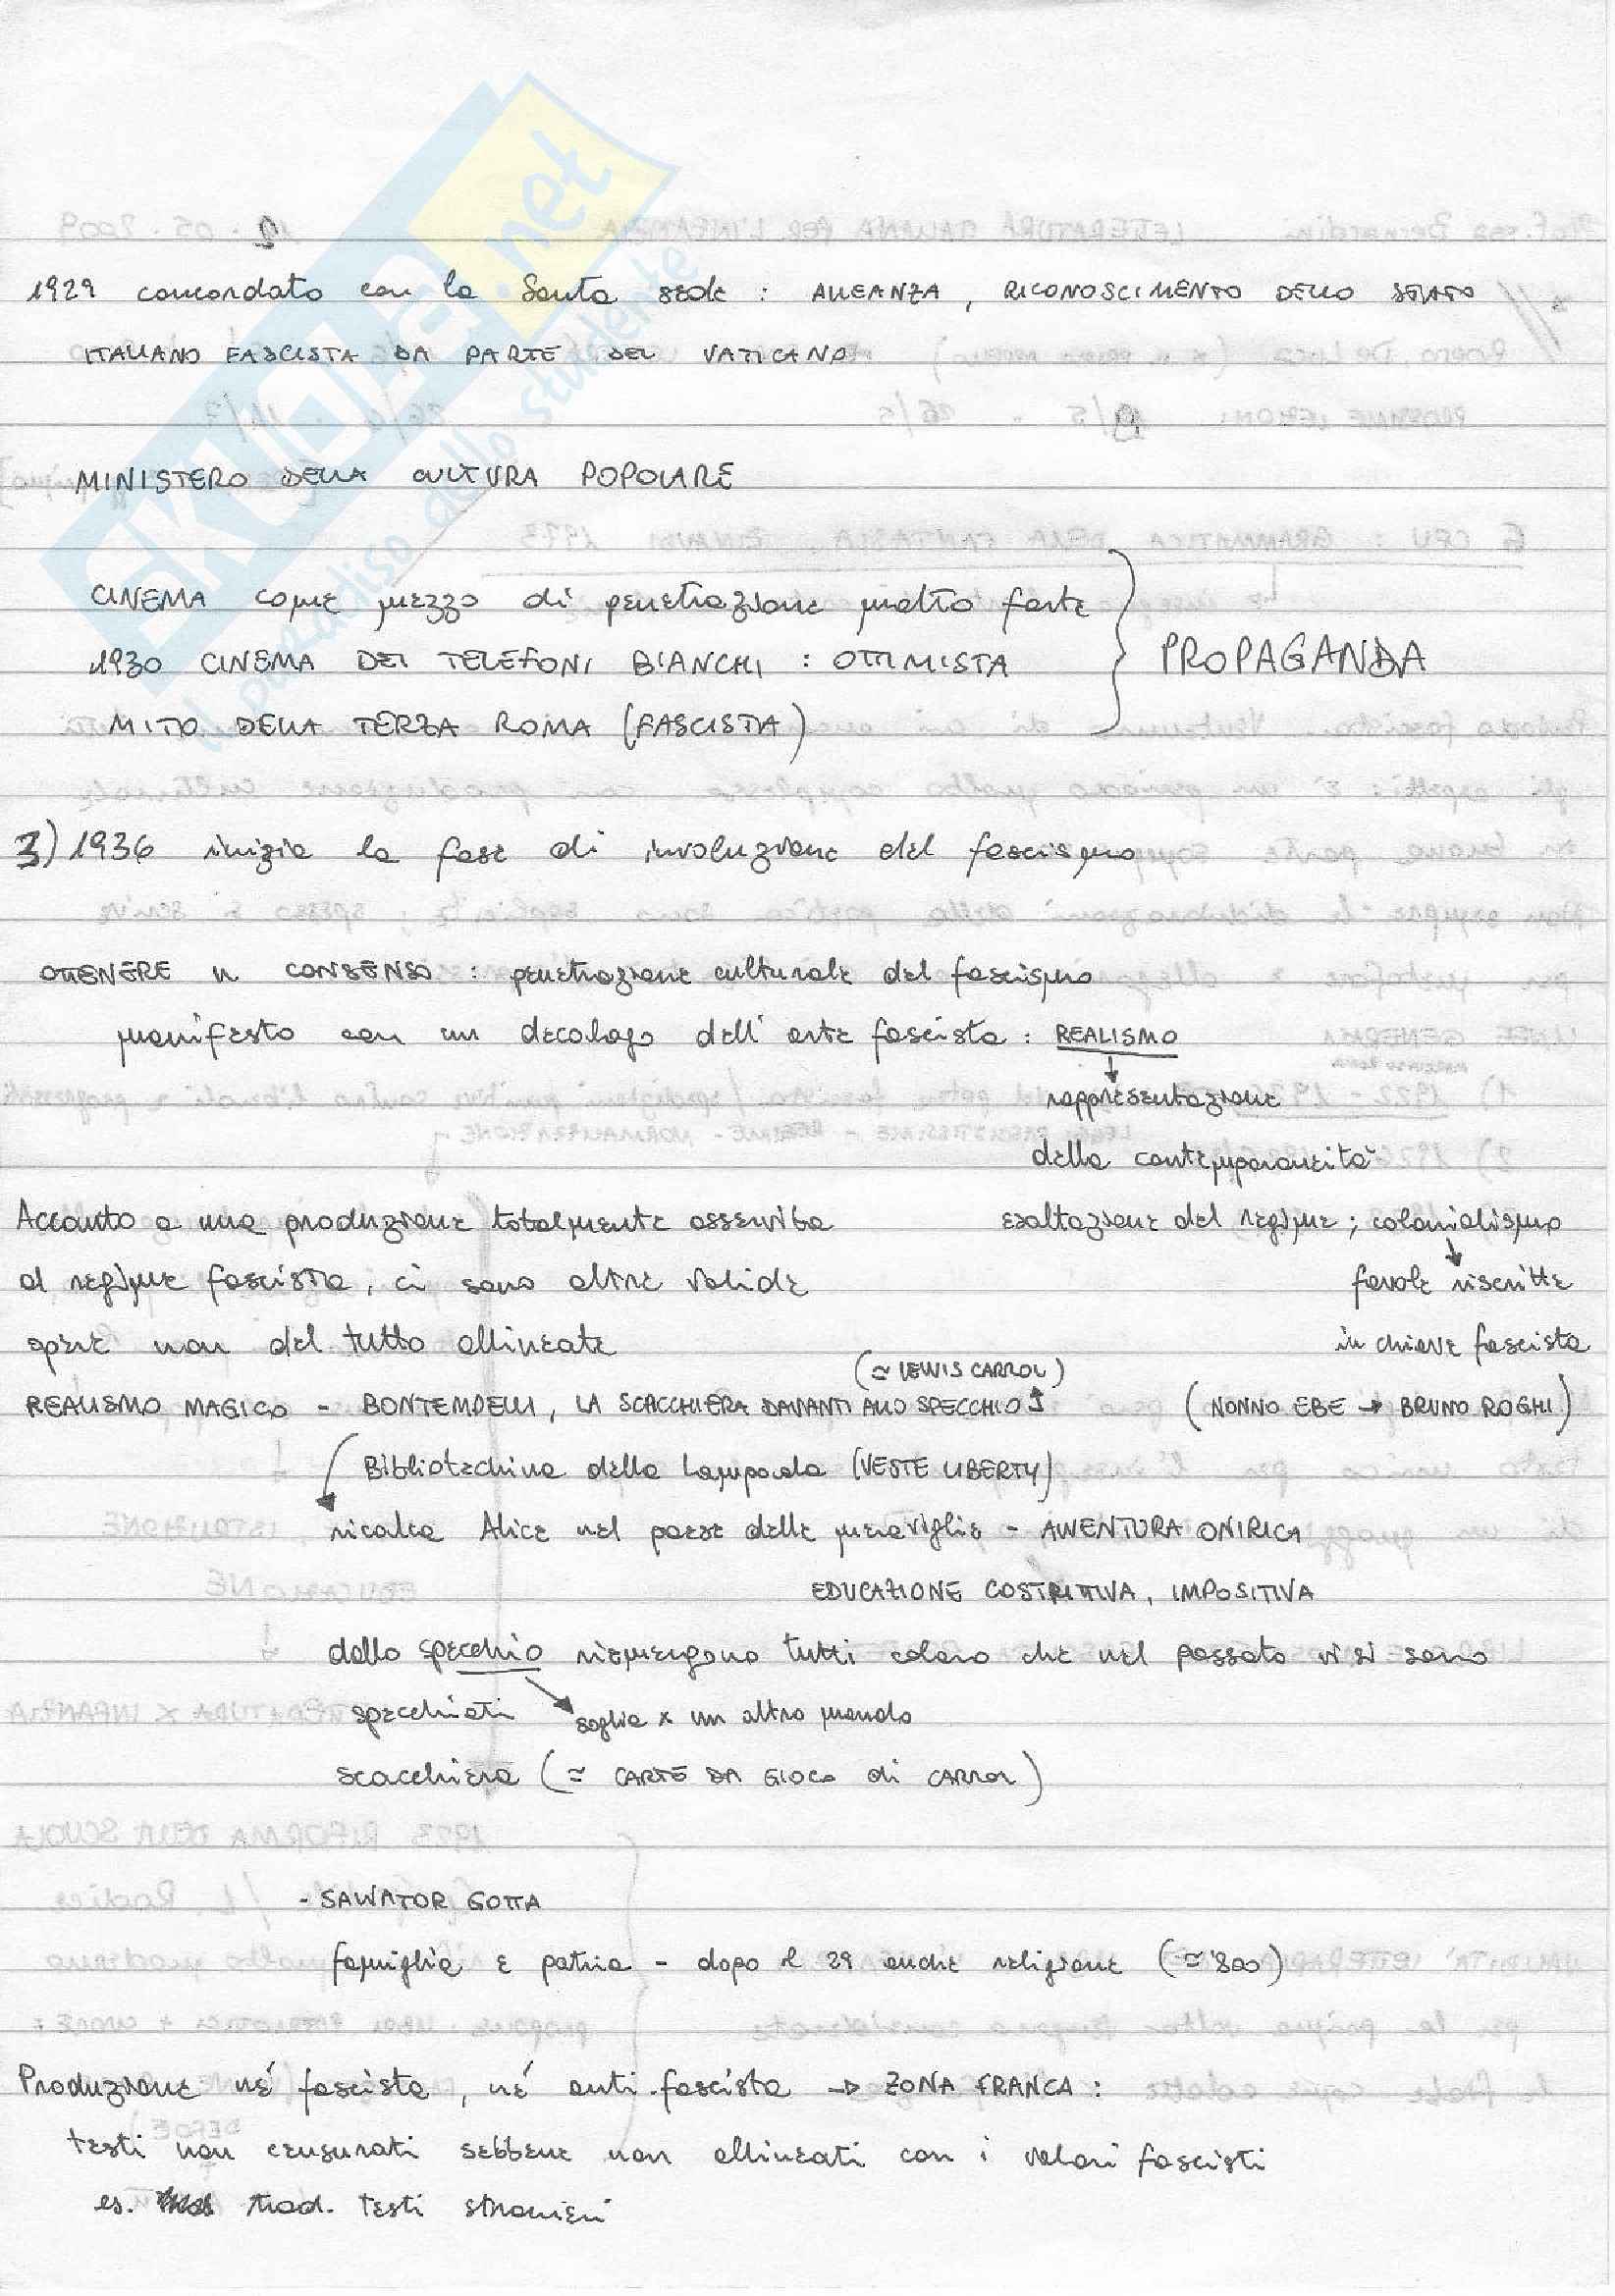 1929 concordato con la Santa sede : ALLEANZA, RICONOSCIMENTO DELLO STATO
ITALIANO FASCISTA DA PARTE DEL VATICANO
MINISTERO DELLA CULTURA POPOLARE
CINEMA come mezzo di penetrazione molto forte
1930 CINEMA DEI TELEFONI BIANCHI : OTTIMISTA
PROPAGANDA
MITO DELLA TERZA ROMA (FASCISTA)
3) 1936 inizia la fase di involuzione del fascismo
OTTENERE IL CONSENSO : penetrazione culturale del fascismo
manifesto con un decalogo dell'arte fascista : REALISMO
rappresentazione
della contemporaneità
Accanto a una produzione totalmente asservita
esaltazione del regime ; colonialismo
al regime fascista, ci sono altre valide
favole riscritte
opere non del tutto allineate
in chiave fascista
(≃ LEWIS CARROL)
REALISMO MAGICO - BONTEMPELLI, LA SCACCHIERA DAVANTI ALLO SPECCHIO
(NONNO EBE → BRUNO ROGHI)
Bibliotechina della Lampada (VESTE LIBERTY)
ricalca Alice nel paese delle meraviglie - AVVENTURA ONIRICA
EDUCAZIONE COSTRITTIVA, IMPOSITIVA
dallo specchio riemergono tutti coloro che nel passato vi si sono
specchiati
soglia x un altro mondo
scacchiera (≃ CARTE DA GIOCO di CARROL)
- SALVATOR GOTTA
famiglia e patria - dopo il 29 anche religione (≃ '800)
Produzione né fascista, né anti-fascista → ZONA FRANCA :
testi non censurati sebbene non allineati con i valori fascisti
es. trad. testi stranieri
SKUOLA.net
il paradiso dello studente